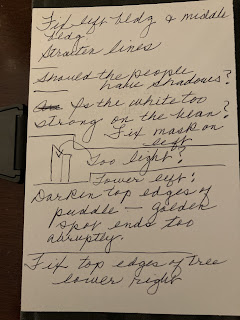 Fix left bldg & middle
bldg.
Straiten lines
Should the people
have shadows?
Is the white too
strong on the bean?
Fix mask on
left
Too light?
Tower left:
Darken top edges of
puddle — golden
spot ends too
abruptly.
Fix top edges of tree
lower right